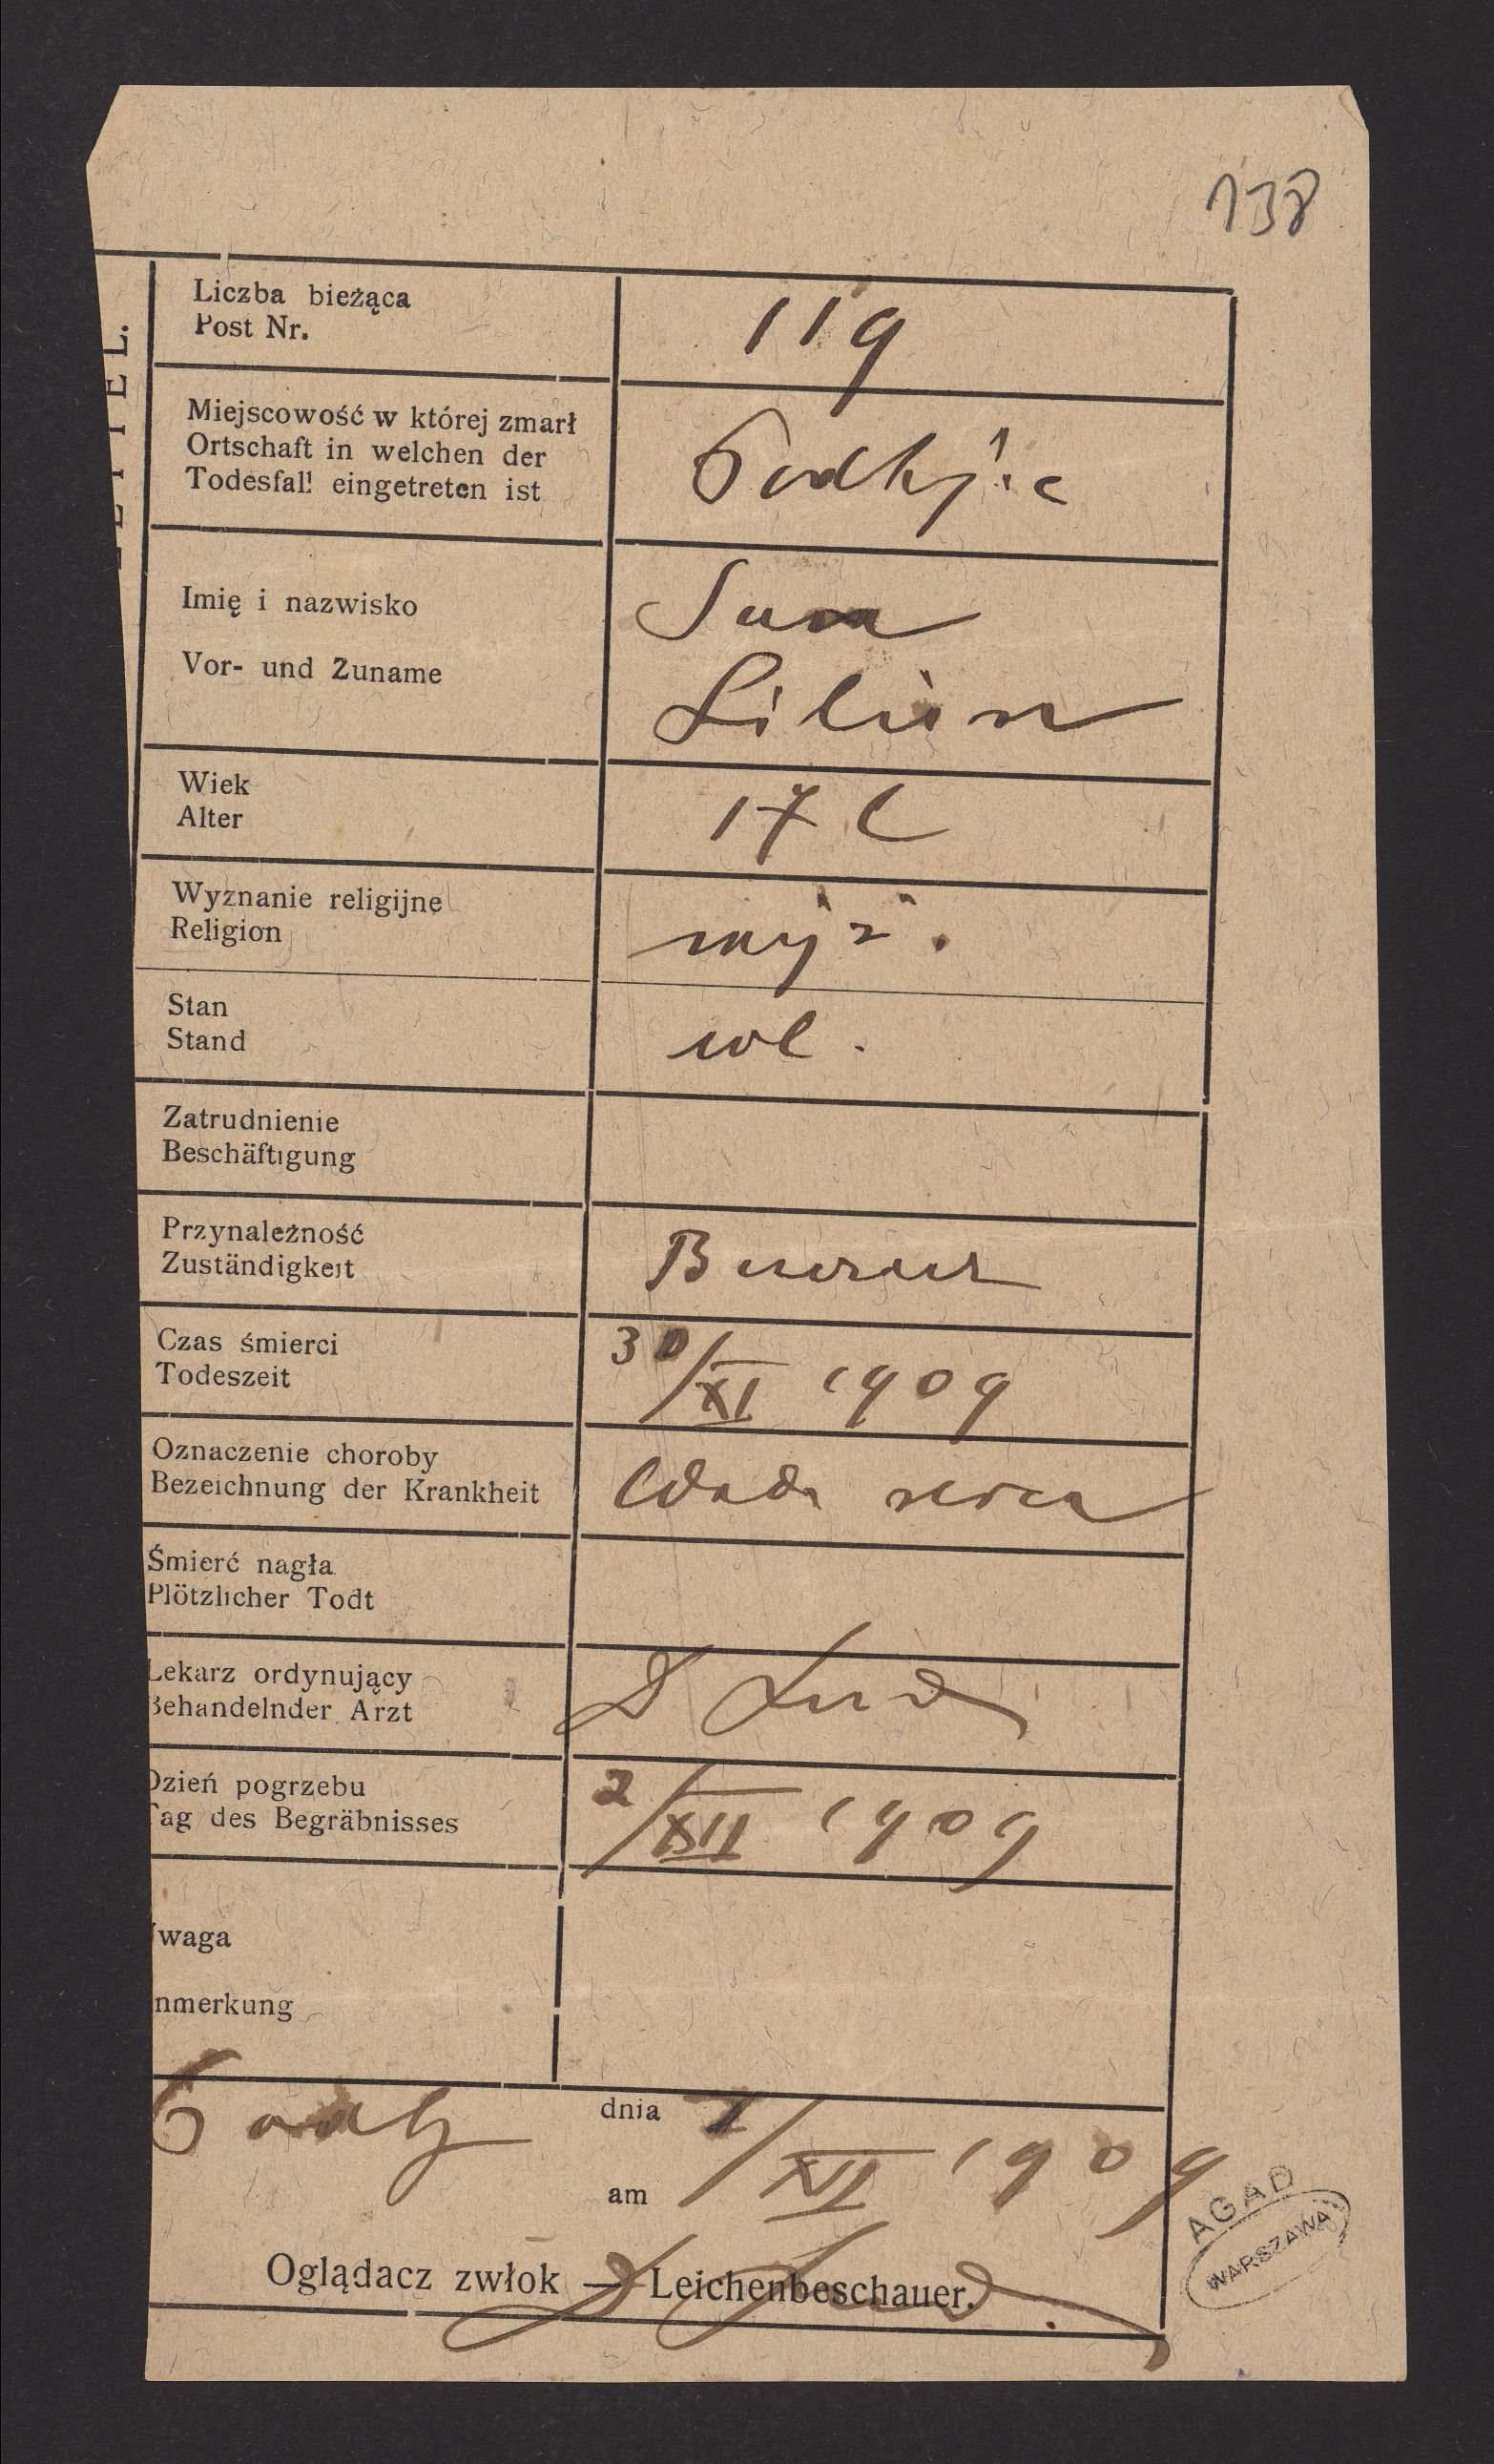 138
Liczba bieżąca
Post Nr.
119
Miejscowość w której zmarł
Ortschaft in welchen der
Todesfall eingetreten ist
Imię i nazwisko
Vor- und Zuname
Sura
Lilien
Wiek
Alter
17 l
Wyznanie religijne
Religion
mojż.
Stan
Stand
wol.
Zatrudnienie
Beschäftigung
Przynależność
Zuständigkeit
Czas śmierci
Todeszeit
30/XI 1909
Oznaczenie choroby
Bezeichnung der Krankheit
Wada serca
Śmierć nagła
Plötzlicher Todt
Lekarz ordynujący
Behandelnder Arzt
Dzień pogrzebu
Tag des Begräbnisses
2/XII 1909
waga
nmerkung
dnia
am
1909
Oglądacz zwłok — Leichenbeschauer.
AGAD
WARSZAWA